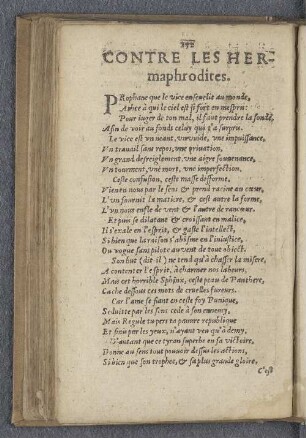 CONTRE LES HER-
maphrodites.
PRophane que le vice enseuelie au monde,
A qui le ciel est si fort en mespris:
Pour iuger de ton mal, il faut prendre la sonde,
Afin de voir au fonds celuy qui t'a surpris.
Le vice est vn neant, vn vuide, vne impuissance,
Vn trauail sans repos, vne priuation,
Vn grand desreiglement, vne aigre souuenance,
Vn tourment, vne mort, vne imperfection.
Ceste confusion, ceste masse difforme,
Vient en nous par le sens & prend racine au cœur,
L'vn fournit la matiere, & cest autre la forme,
L'vn nous enfle de vent & l'autre de rancœur.
Et puis se dilatant & croissant en malice,
Il s'exale en l'esprit, & gaste l'intellect,
Si bien que la raison s'abisme en l'iniustice,
Ou vogue sans pilote au vent de tout obiect.
Son but (dit il) ne tend qu'à chasser la misere,
A contenter l'esprit, à charmer nos labeurs,
Mais cet horrible Sphinx, ceste peau de Panthere,
Cache dessous ces mots de cruelles fureurs.
Car l'ame se fiant en ceste foy Punique,
Seduite par les sens cede à son ennemy,
Mais Regule tu pers ta pauure republique
Et finis par les yeux, n'ayant veu qu'à demy.
D'autant que ce tyran superbe en sa victoire,
Donne au sens tout pouuoir dessus les actions,
Si bien que son trophee, & sa plus grande gloire,
C'est